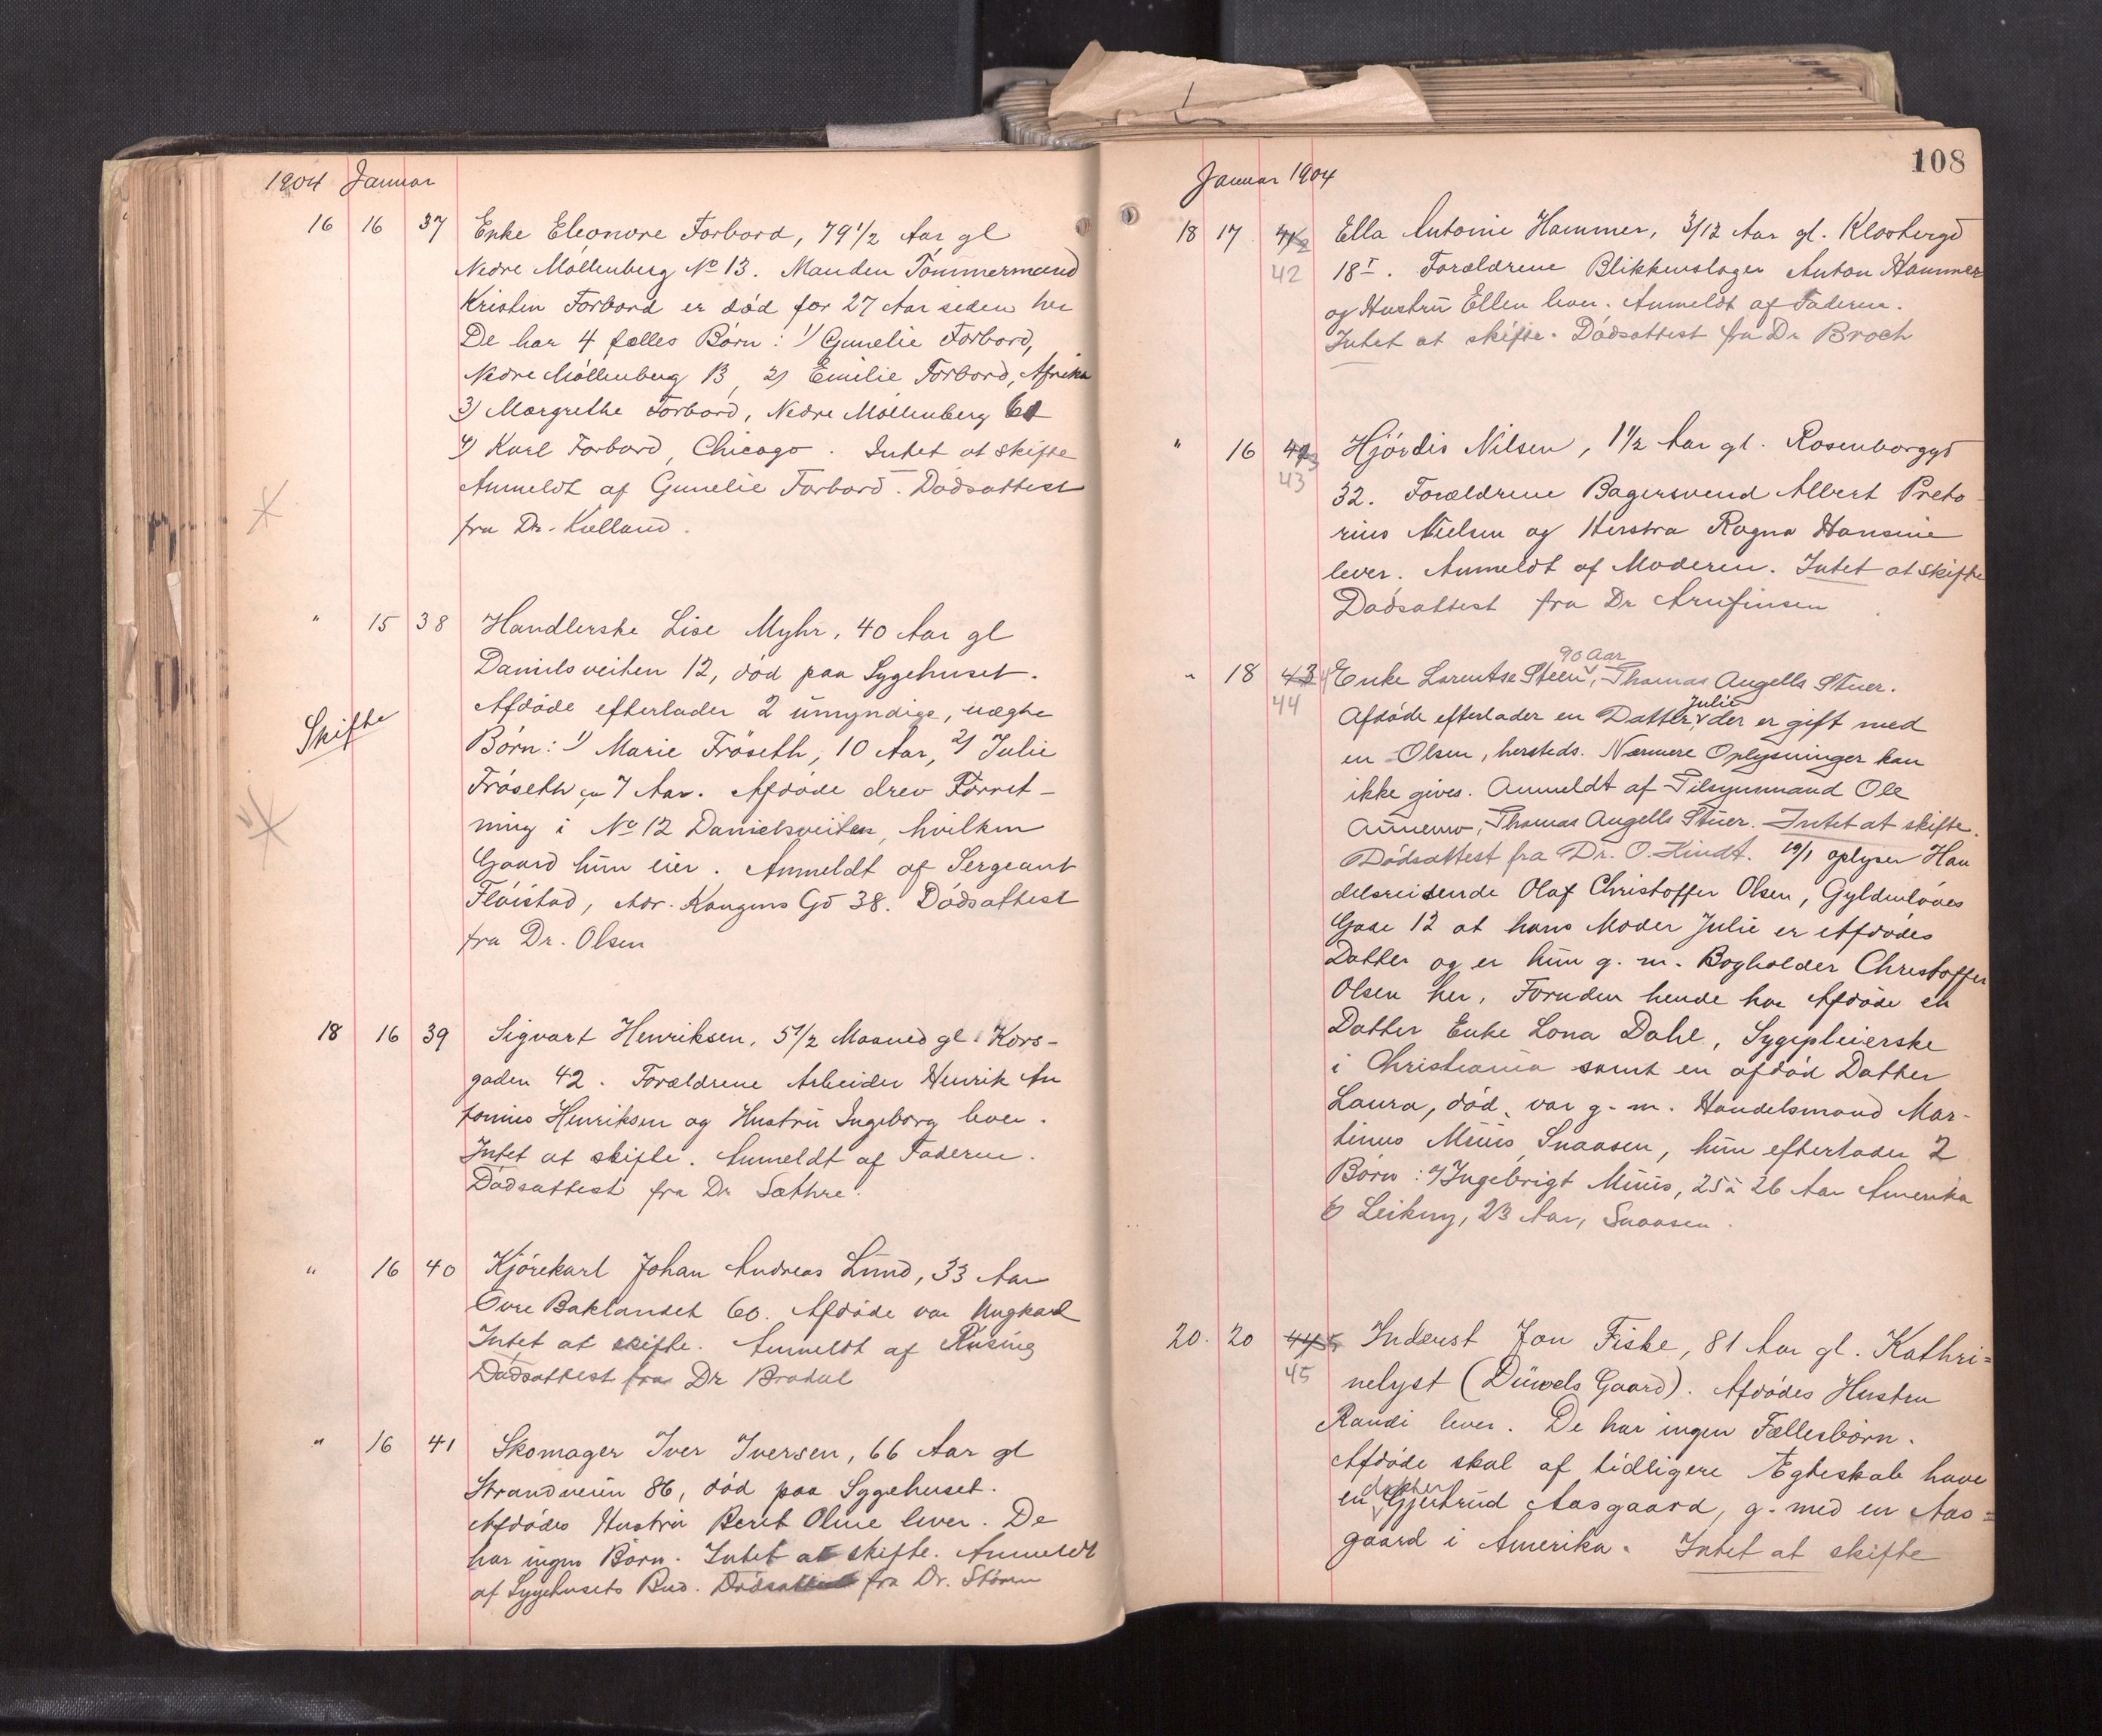 1904 Januar
16 16 37 Enke Eleonore Forbord, 79 1/2 Aar gl
Nedre Möllenberg No 13. Manden Tömmermand
Kristen Forbord er död for 27 Aar siden her
De har 4 fælles Börn: 1) Gunelie Forbord,
Nedre Möllenberg 13, 2) Emilie Forbord, Afrika
3) Margrethe Forbord, Nedre Möllenberg 61
4) Karl Forbord, Chicago. Intet at skifte
Anmeldt af Gunelie Forbord. Dödsattest
fra Dr. Kielland.
" 15 38 Handlerske Lise Myhr, 40 Aar gl
Danielsveiten 12, död paa Sygehuset.
Afdöde efterlader 2 umyndige, uægte
Skifte
Börn: 1) Marie Fröseth, 10 Aar, 2) Julie
Fröseth, 7 Aar. Afdöde drev Forret-
ning i No 12 Danielsveiten, hvilken
Gaard hun eier. Anmeldt af Sergeant
Flöistad, Adr. Kongens Gd 38. Dödsattest
fra Dr. Olsen
18 16 39 Sigvart Henriksen, 5 1/2 Maaned gl. Kors-
gaden 42. Forældrene Arbeider Henrik An
tonius Henriksen og Hustru Ingeborg lever.
Intet at skifte. Anmeldt af Faderen.
Dödsattest fra Dr Sæthre.
" 16 40 Kjörekarl Johan Andreas Lund, 33 Aar
Övre Baklandet 60. Afdöde var Ungkarl
Intet at skifte. Anmeldt af Rusing
Dödsattest fra Dr Bradal
" 16 41 Skomager Iver Iversen, 66 Aar gl
Strandveien 86, död paa Sygehuset.
Afdödes Hustru Berit Oline lever. De
har ingen Börn. Intet at skifte. Anmeldt
af Sygehusets Bud. Dödsattest fra Dr. Stören
108
Januar 1904
18 17 42 Ella Antonie Hammer, 3/12 Aar gl. Klostergd
42 18 I. Forældrene Blikkenslager Anton Hammer
og Hustru Ellen lever. Anmeldt af Faderen.
Intet at skifte. Dödsattest fra Dr Broch
" 16 43 Hjördis Nilsen, 1 1/2 Aar gl. Rosenborggd
43 32. Forældrene Bagersvend Albert Preto-
rius Nielsen og Hustru Ragna Hansine
lever. Anmeldt af Moderen. Intet at skifte
Dödsattest fra Dr Arnfinsen
90 Aar
" 18 43 Enke Lorentse Steen, Thomas Angells Stuer.
44 Julie
Afdöde efterlader en Datter, der er gift med
en Olsen, hersteds. Nærmere Oplysninger kan
ikke gives. Anmeldt af Tilsynmand Ole
Aunemo, Thomas Angells Stuer. Intet at skifte.
Dödsattest fra Dr. O. Kindt. 19/1 oplyser Han
delsreisende Olaf Christoffer Olsen, Gyldenlöves
Gade 12 at hans Moder Julie er Afdödes
Datter og er hun g. m. Bogholder Christoffer
Olsen her, Foruden hende har Afdöde en
Datter Enke Lona Dahl, Sygepleierske
i Christiania samt en afdöd Datter
Laura, död, var g. m. Handelsmand Mar-
tinus Muus, Snaasen, hun efterlader 2
Börn: a) Ingebrigt Muus, 25 à 26 Aar Amerika
b) Leikny, 23 Aar, Snaasen.
20. 20 44 Inderst Jon Fiske, 81 Aar gl. Kathri=
45 nelyst (Düwels Gaard). Afdödes Hustru
Randi lever. De har ingen Fællesbörn.
Afdöde skal af tidligere Ægteskab have
datter
en Gjertrud Aasgaard, g. med en Aas=
gaard i Amerika. Intet at skifte